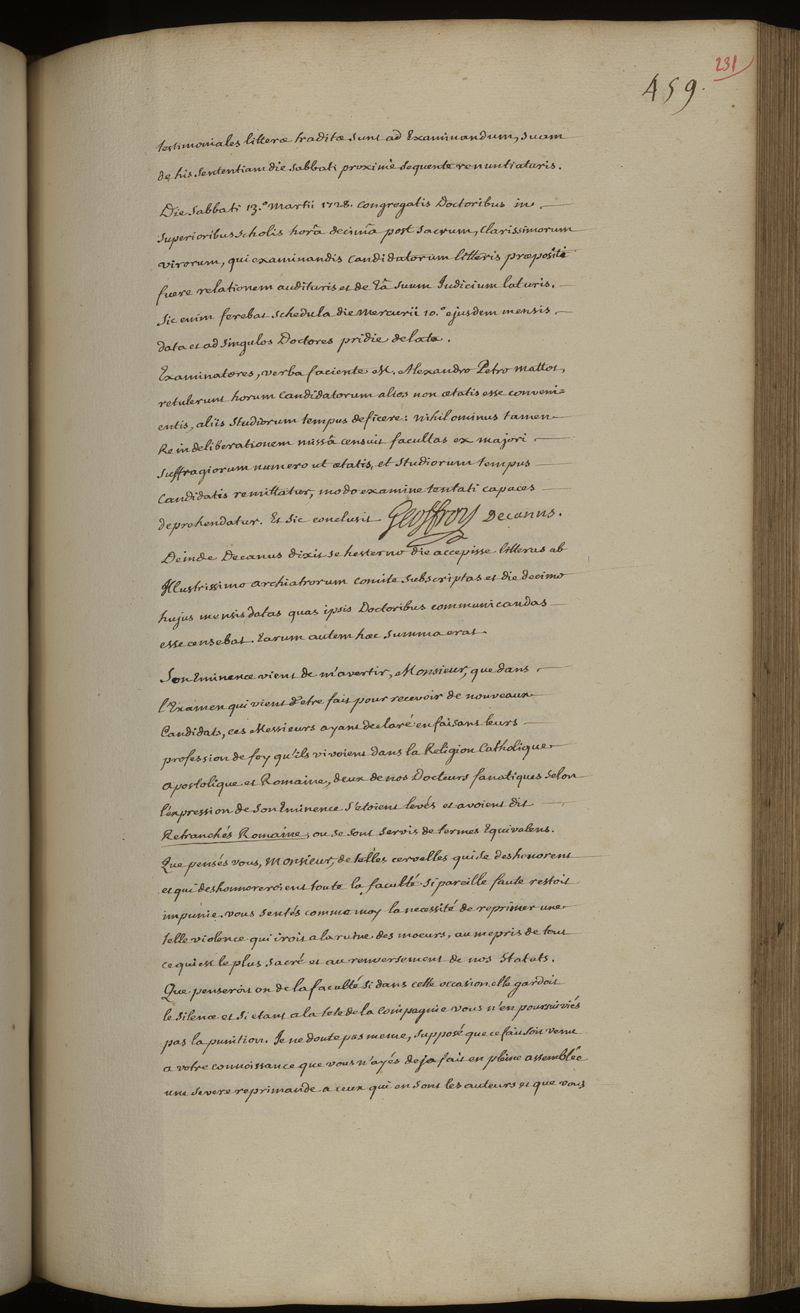 231
459.
testimoniales litteræ traditæ sunt ad Examinandum, suam
de his sententiam die Sabbati proximè sequente renuntiaturis.
Die Sabbati 13.° Martii 1728. Congregatis Doctoribus in
Superioribus Scholis horâ decimâ post Sacrum, Clarissimorum
virorum, qui examinandis Candidatorum litteris præpositi
fuere relationem audituris et de eâ suum Judicium laturis.
Sic enim ferebat Schedula die Mercurii 10.° ejusdem mensis
data et ad Singulos Doctores pridie delata.
Examinatores, verba faciente M. Alexandro Petro Mattot,
retulerunt horum Candidatorum alios non ætatis esse conveni=
entis, aliis Studiorum tempus deficere: nihilominus tamen
Re in deliberationem missâ censuit facultas ex majori
Suffragiorum numero ut ætatis, et Studiorum tempus
Candidatis remittatur, modo examine tentati capaces
deprehendatur. Et Sic conclusit Geoffroy Decanus.
Deinde Decanus dixit se hesterno die accepisse litteras ab
Illustrissimo archiatrorum comite Subscriptas et die decimo
hujus mensis datas quas ipsis Doctoribus communicandas
esse censebat. Earum autem hæc Summa erat.
Son Eminence vient de m'avertir, Monsieur, que dans
l'Examen qui vient d'etre fait pour recevoir de nouveaux
Candidats, ces Messieurs ayant declaré en faisant leurs
profession de foy qu'ils vivoient dans la Religion Catholique
apostolique et Romaine, deux de nos Docteurs fanatiques selon
l'expression de Son Eminence s'étoient levés et avoient dit
Retranchés Romaine, ou se sont servis de termes Equivalens.
Que pensés vous, Monsieur, de telles cervelles qui se deshonorent
et qui deshonnoreroient toute la faculté si pareille faute restoit
impunie. vous sentés comme moy la necessité de reprimer une
telle violence qui iroit a la ruine des moeurs, au mepris de tout
ce qui est le plus sacré et au renversement de nos Statuts.
Que penseroit on de la faculté si dans cette occasion elle gardoit
le silence et si etant a la tete de la Compagnie vous n'en poursuiviés
pas la punition. Je ne doute pas meme, supposé que ce fait soit venu
a votre connoissance que vous n'ayés deja fait en pleine assemblée
une severe reprimande a ceux qui en sont les auteurs et que vous